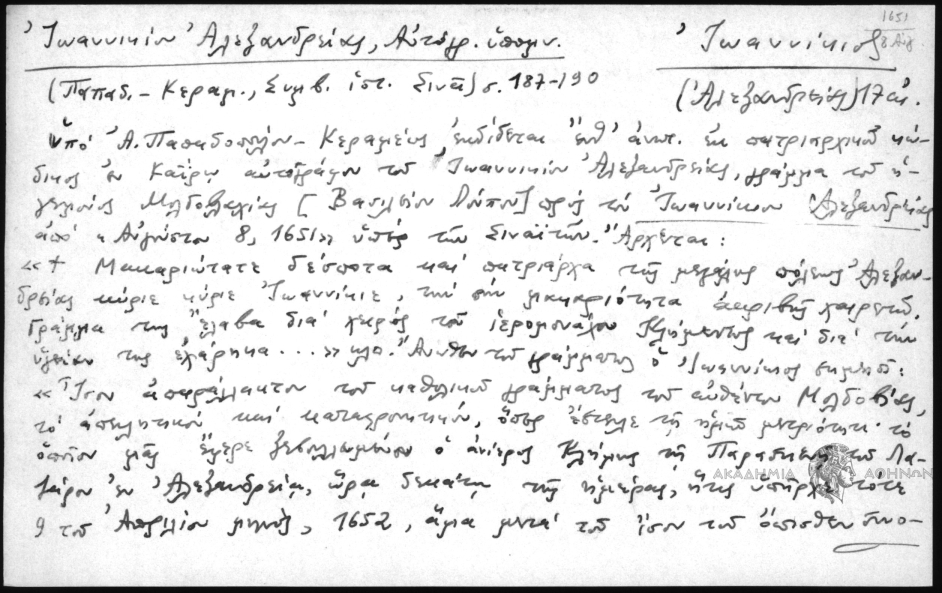 1651
8 Αὐγ.
Ἰωαννικίου Ἀλεξανδρείας, Αὐτόγρ. ὑπομν.
Ἰωαννίκιος
(Παπαδ. - Κεραμ., Συμβ. ἱστ. Σινᾶ) σ. 187-190
(Ἀλεξανδρείας) 17 αἰ.
Ὑπό Ἀ. Παπαδοπούλου - Κεραμέως ἐκδίδεται ἔνθ' ἀνωτ. ἐκ πατριαρχικοῦ κώ-
δικος ἐν Καΐρῳ αὐτογράφου τοῦ Ἰωαννικίου Ἀλεξανδρείας, γράμμα τοῦ ἡ-
γεμόνος Μολδοβλαχίας [Βασιλείου Λούπου] πρός τόν Ἰωαννίκιον Ἀλεξανδρείας
ἀπό «Αὐγούστου 8, 1651» ὑπέρ τῶν Σιναϊτῶν. Ἄρχεται:
«+ Μακαριώτατε δέσποτα καί πατριάρχα τῆς μεγάλης πόλεως Ἀλεξαν-
δρείας κύριε κύριε Ἰωαννίκιε, τήν σήν μακαριότητα ἀκριβῶς χαιρετῶ.
Γράμμα της ἔλαβα διά χειρός τοῦ ἱερομονάχου Κλήμεντος καί διά τήν
ὑγείαν της ἐχάρηκα . . . .» κλπ. Ἄνωθεν τοῦ γράμματος ὁ Ἰωαννίκιος σημειοῖ:
«Ἴσον ἀπαράλλακτον τοῦ καθολικοῦ γράμματος τοῦ αὐθέντου Μολδοβίας,
τό ἀπειλητικόν καί καταφρονητικόν, ὅπερ ἔστειλε τῇ ἡμῶν μετριότητι· τό
ὁποῖον μᾶς ἔφερε ξεβουλλωμένον ὁ ἀνίερος Κλήμης τῇ Παρασκευῇ τοῦ Λα-
ζάρου ἐν Ἀλεξανδρείᾳ, ὥρᾳ δεκάτῃ τῆς ἡμέρας, ἥτις ὑπῆρχε τότε
9 τοῦ Ἀπριλίου μηνός, 1652, ἅμα μετά τοῦ ἴσου τοῦ ὄπισθεν συνο-
ΑΚΑΔΗΜΙΑ ΑΘΗΝΩΝ